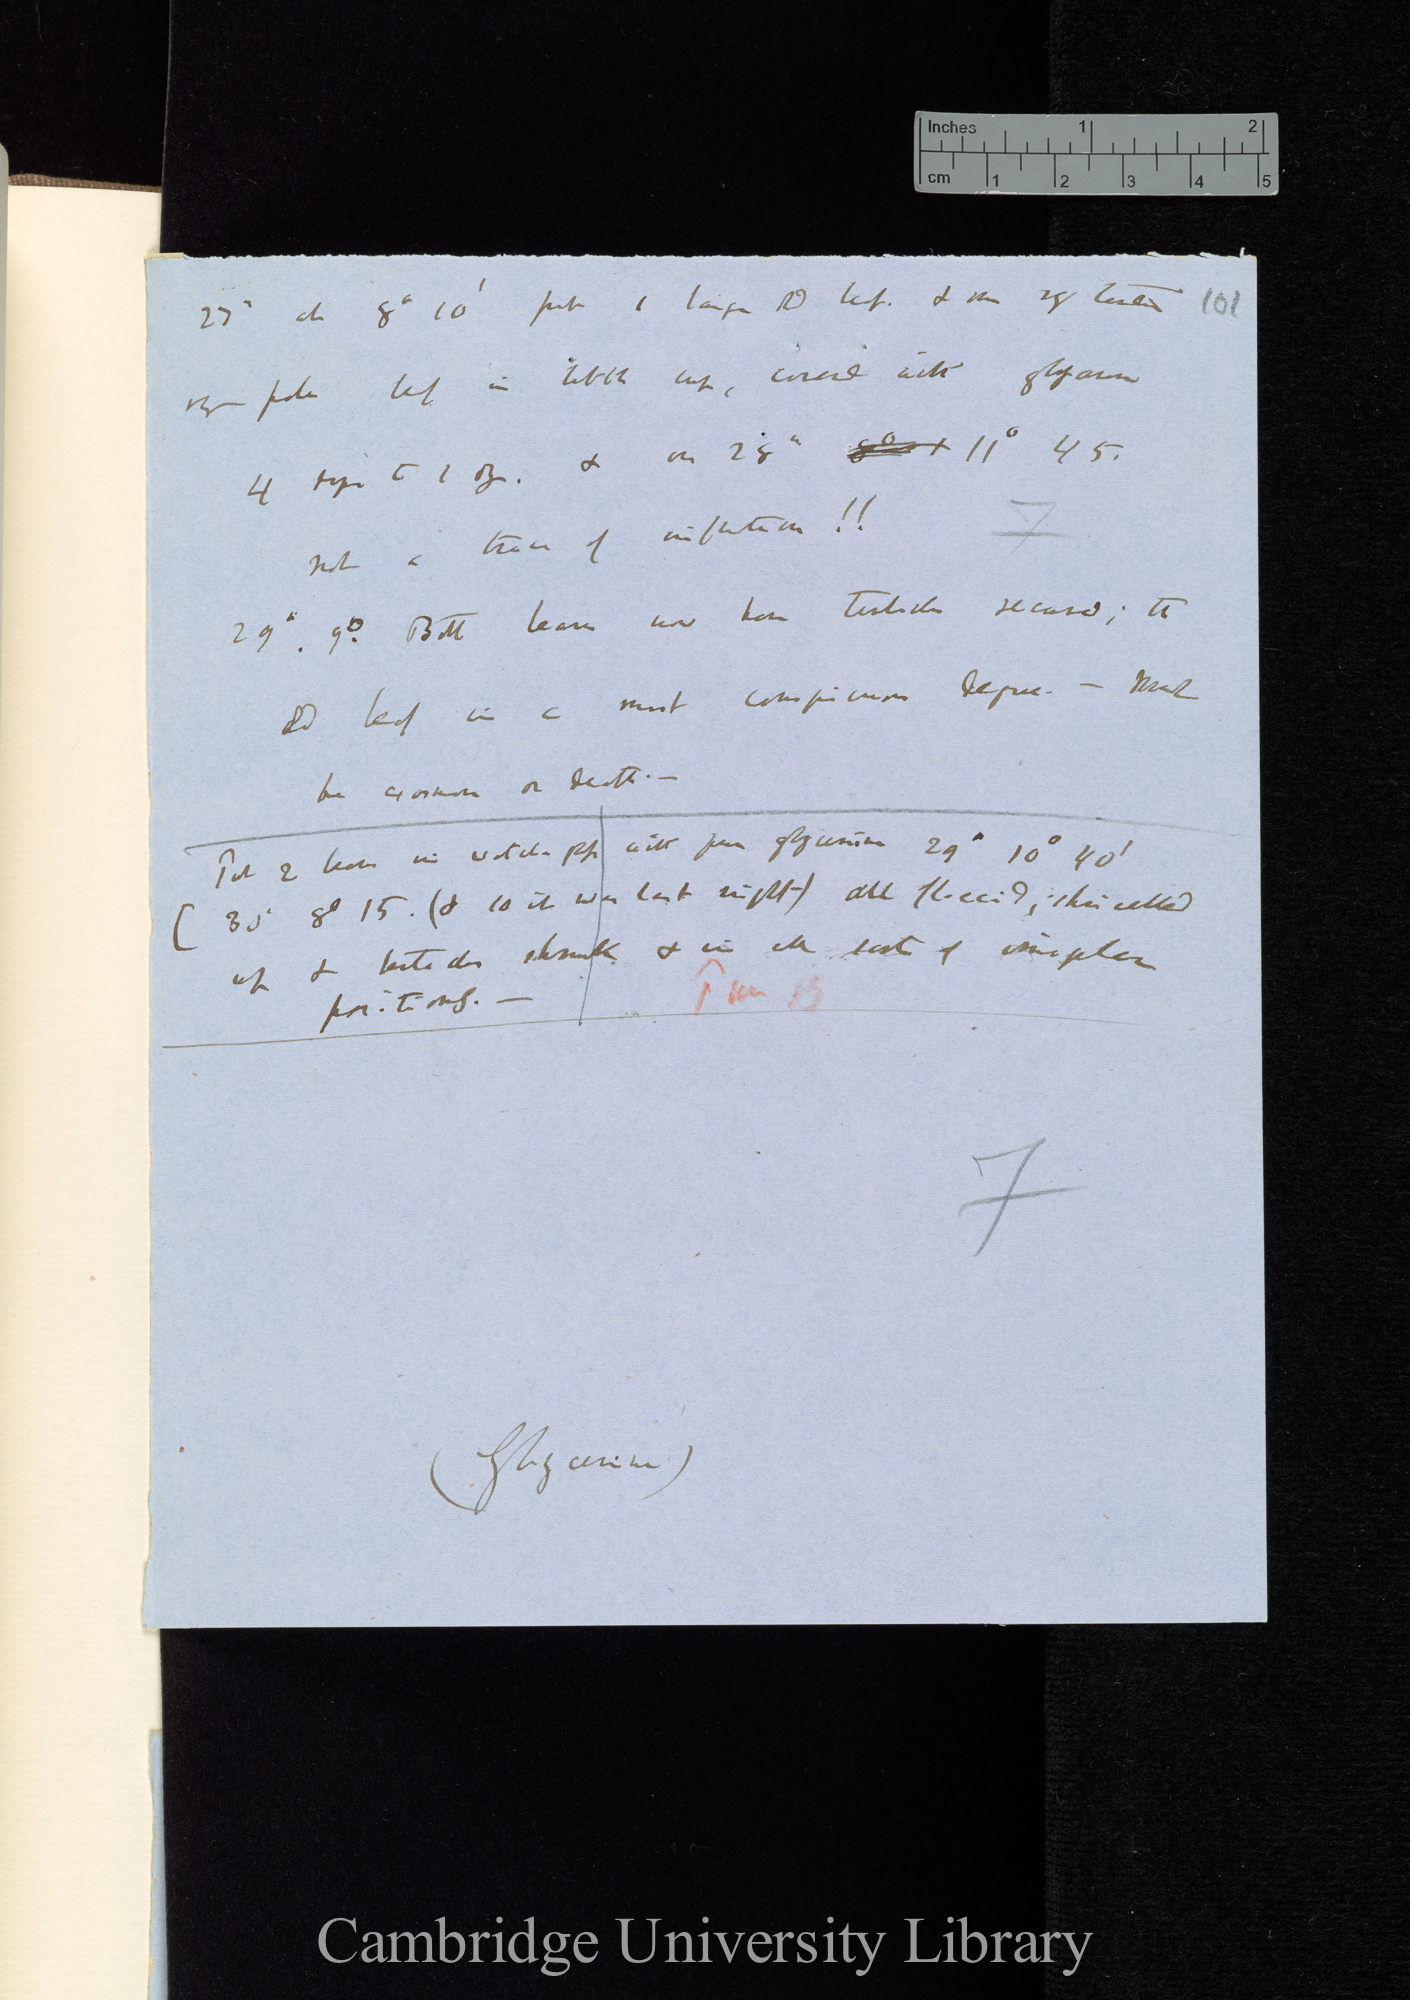 Inches 1 2
cm 1 2 3 4 5
27th at 8° 10' put 1 large RD leaf. & one
101
leaf in little cup, covered with glycerine
4 to 1 oz. & on 28th 11° 45.
not a trace of inflection!!
7
29th. 9°. Both leaves now have tentacles recurved; the
RD leaf in a most conspicuous degree. — Must
be exosmose or death. —
Put 2 leaves in watch glass with pure glycerine 29th 10° 40'
(30 8° 15. (& so it was last night) all flaccid, shrivelled
up & tentacles shrunk & in all sorts of irregular
positions. —
7
(Glycerine)
Cambridge University Library